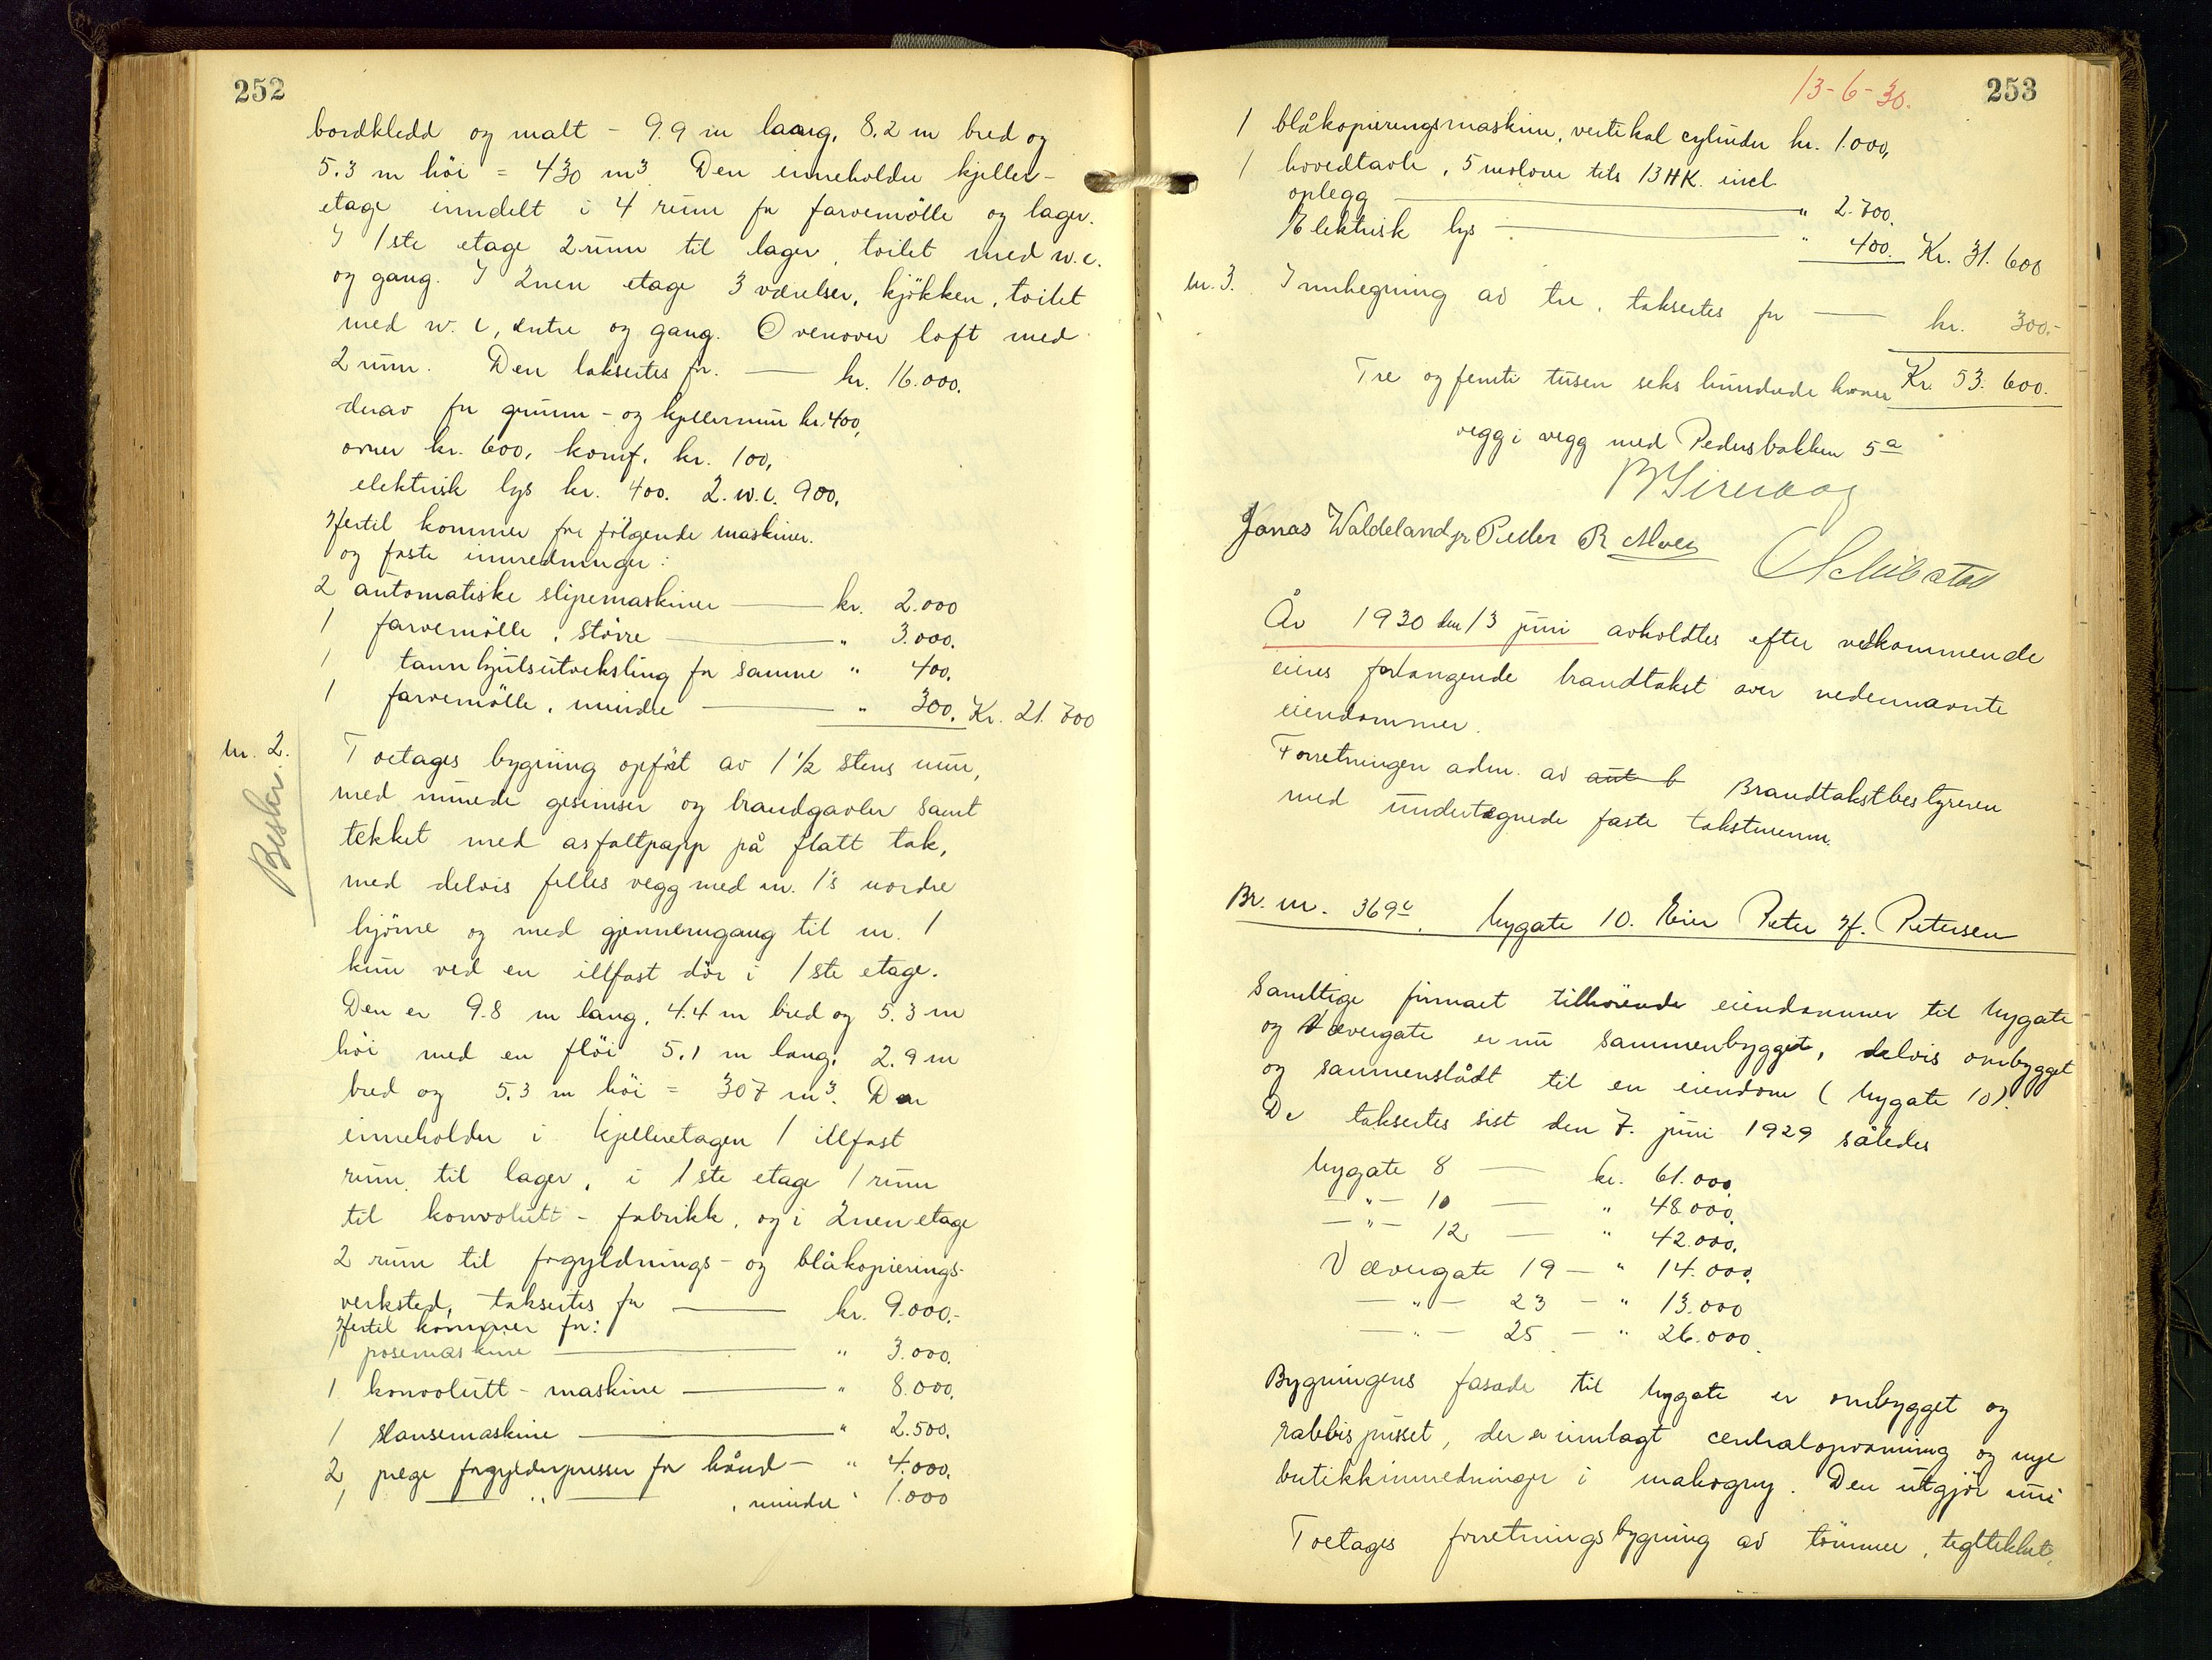 252
bordkledd og malt - 9.9 m laang, 8.2 m bred og
5.3 m höi = 430 m³. Den inneholder kjeller-
etage inndelt i 4 rum for farvemölle og lager.
I 1ste etage 2 rum til lager, toilet med w.c.
og gang. I 2nen etage 3 værelser, kjökken, toilet
med w.c, entre og gang. Ovenover loft med
2 rum. Den taksertes for. — kr. 16.000.
derav for grunn- og kjellermur kr. 400,
ovner kr. 600, komf. kr. 100,
elektrisk lys kr. 400. 2 w.c. 900.
Hertil kommer for fölgende maskiner
og faste innredninger:
2 automatiske slipemaskiner — kr. 2.000
1 farvemölle, större — " 3.000.
1 tannhjulsutveksling for samme " 400.
1 farvemölle, mindre — " 300. Kr. 21.700
nr. 2.
Besikt.
Toetages bygning opfört av 1½ stens mur,
med murede gesimser og brandgavler samt
tekket med asfaltpapp på flatt tak,
med delvis felles vegg med nr. 1's nordre
hjörne og med gjennemgang til nr. 1
kun ved en illfast dör i 1ste etage.
Den er 9.8 m lang, 4.4 m bred og 5.3 m
höi med en flöi 5.1 m lang, 2.9 m
bred og 5.3 m höi = 307 m³. Den
inneholder i kjelleretagen 1 illfast
rum til lager, i 1ste etage 1 rum
til konvolutt-fabrikk, og i 2nen etage
2 rum til forgyldnings- og blåkopierings-
verksted, taksertes for — kr. 9.000.-
Hertil kommer for:
1 posemaskine — " 3.000.
1 konvolutt-maskine — " 8.000.
1 stansemaskine — " 2.500.
2 prege forgylderpresser for hånd — " 4.000.
1 — " — , mindre " 1.000
13-6-30.
253
1 blåkopieringsmaskine, vertikal cylinder kr. 1.000,
1 hovedtavle, 5 motorer tils 13 HK. incl.
oplegg — " 2.700.
Elektrisk lys — " 400. Kr. 31.600
nr. 3. Innhegning av tre, taksertes for — kr. 300.-
Tre og femti tusen seks hundrede kroner Kr. 53.600.
vegg i vegg med Pedersbakken 5a
Jonas Waldeland jr Peder R
År 1930 den 13 juni avholdtes efter vedkommende
eieres forlangende brandtakst over nedennævnte
eiendommer.
Forretningen adm. av aut b Brandtakstbestyreren
med undertegnede faste takstmenn.
Br. nr. 369c. Nygate 10. Eier Peter H. Petersen
Samtlige firmaet tilhörende eiendommer til Nygate
og Vævergate er nu sammenbygget, delvis ombygget
og sammenslådt til en eiendom (Nygate 10).
De taksertes sist den 7. juni 1929 således
Nygate 8 — kr. 61.000.
— " — 10 — " 48.000.
— " — 12 — " 42.000.
Vævergate 19 — " 14.000.
— " — 23 — " 13.000
— " — 25 — " 26.000.
Bygningens fasade til Nygate er ombygget og
rabbispusset, der er innlagt centralopvarming og nye
butikkinnredninger i mahogny. Den utgjör nu:
Toetages forretningsbygning av tömmer, tegltekket,